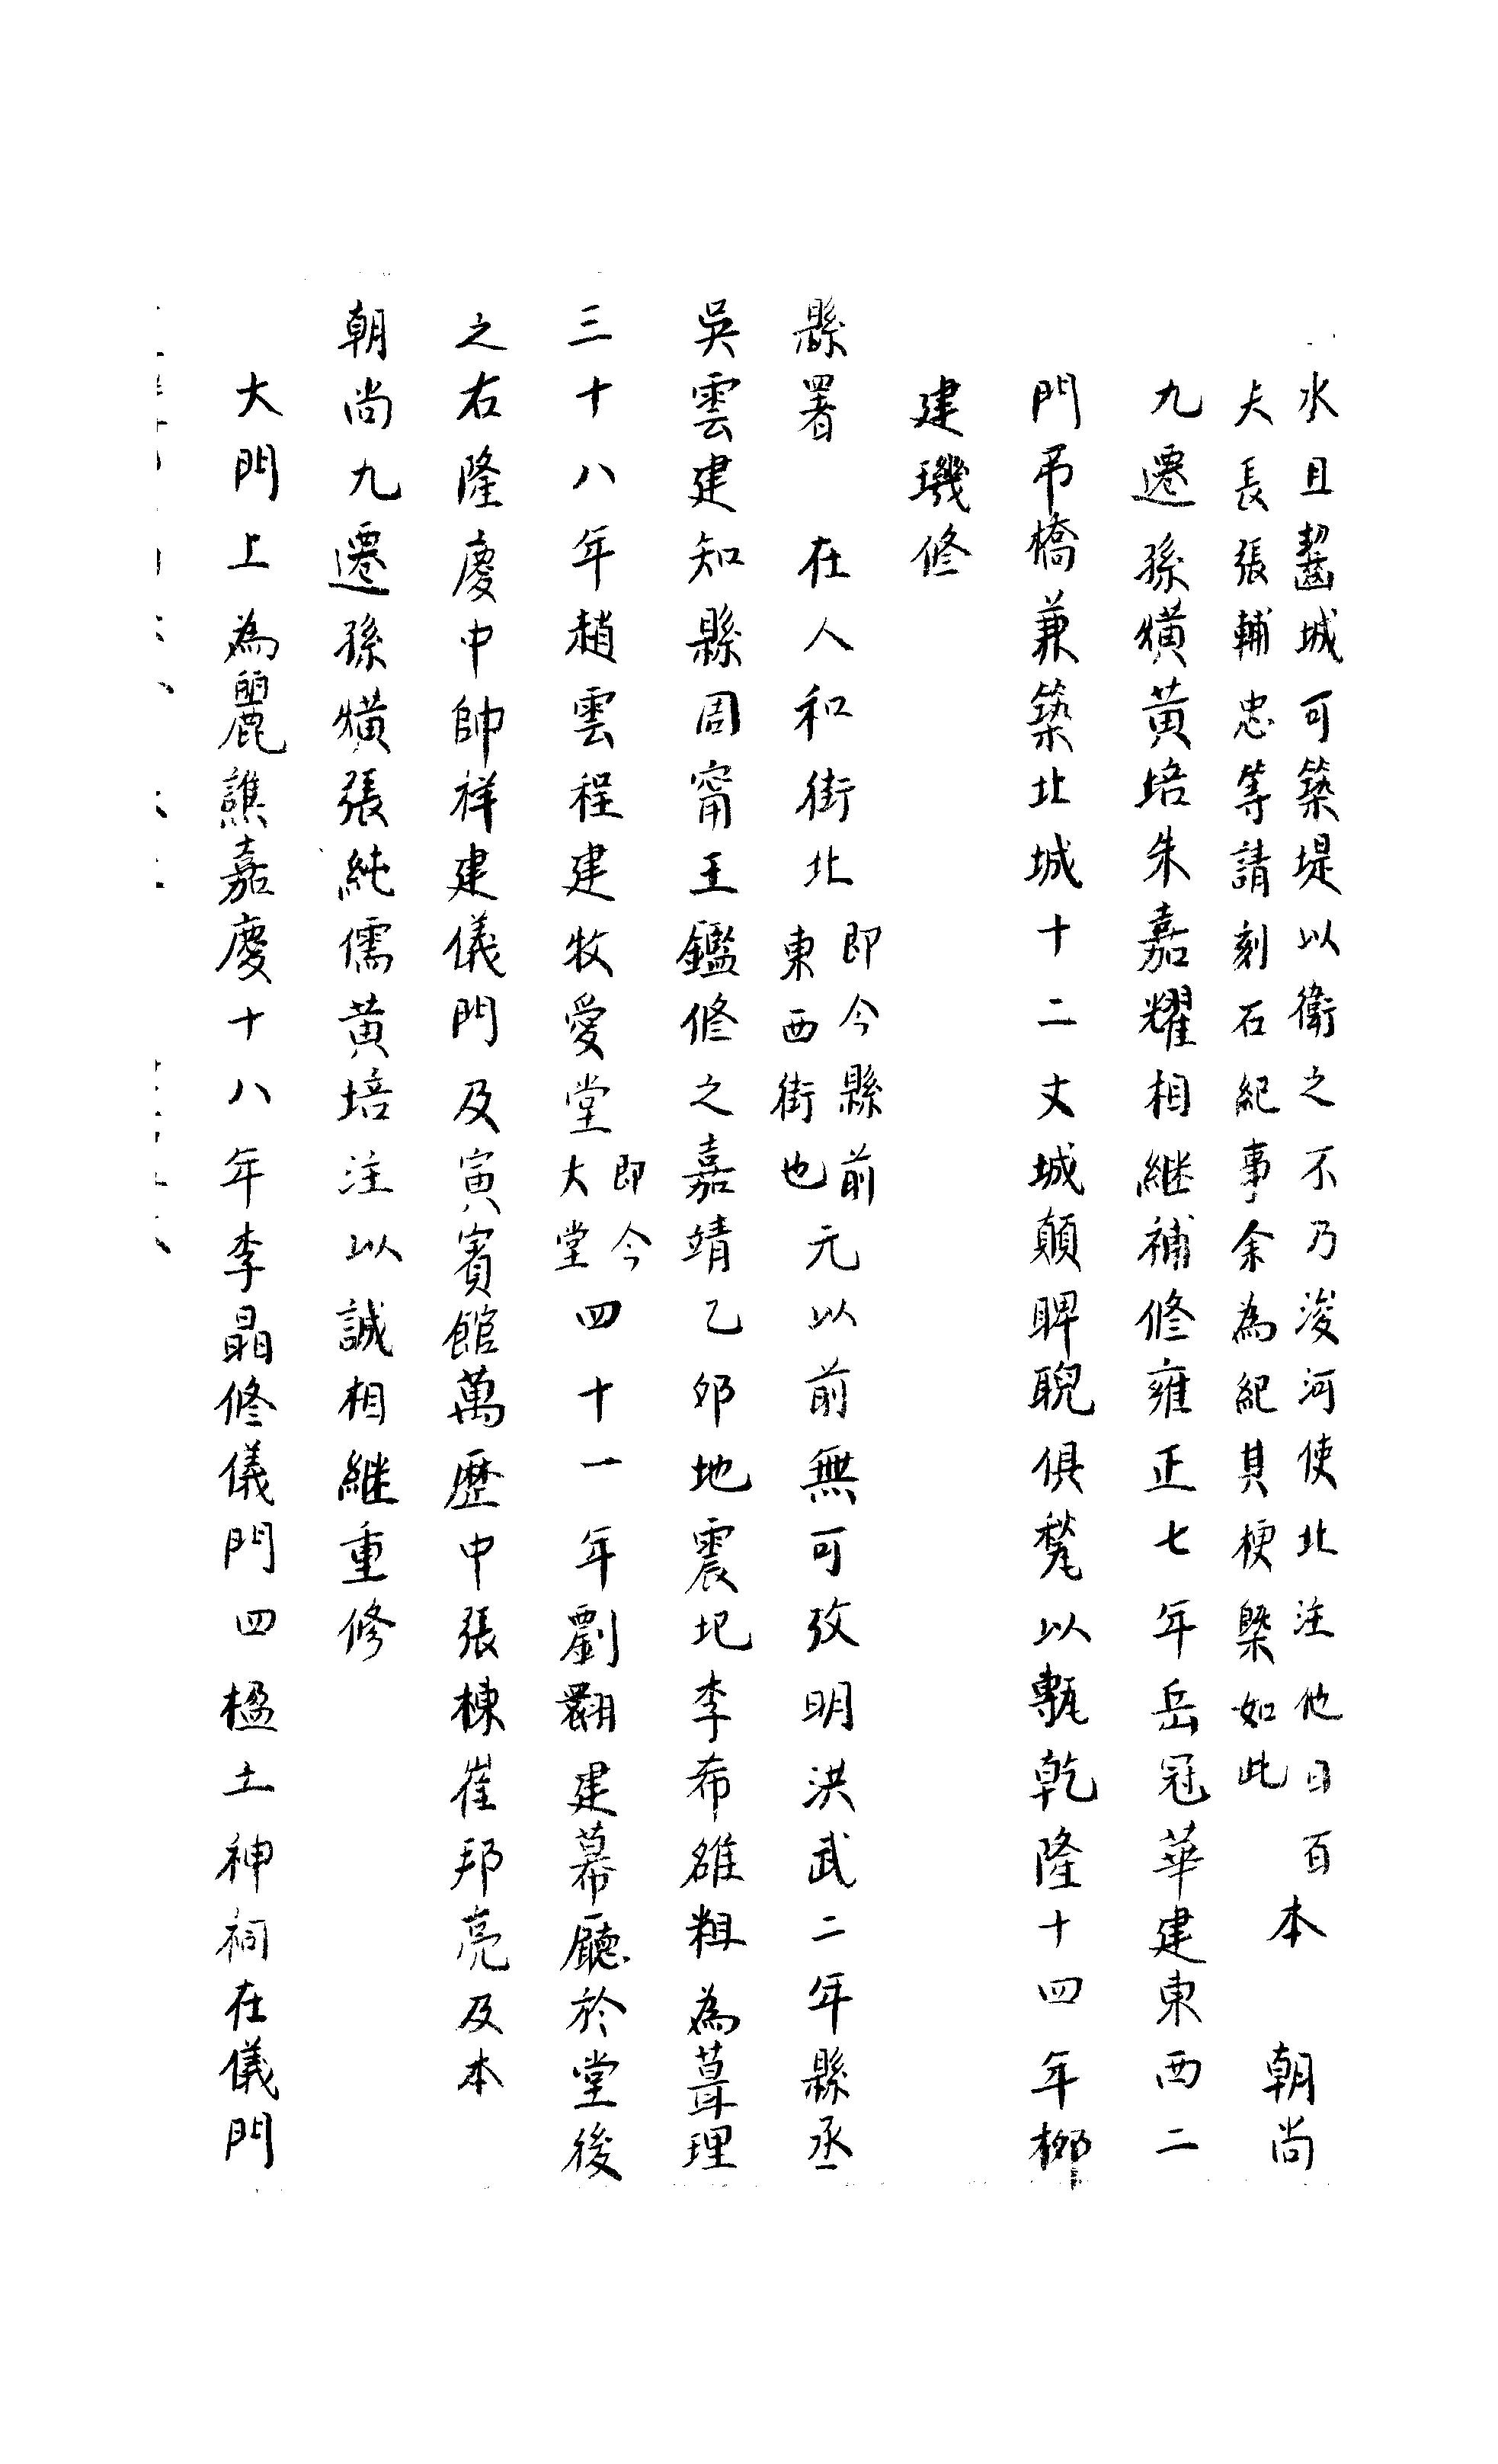 水且齧城可築堤以衛之不乃浚河使北注他日百
夫長張輔忠等請刻石紀事余為紀其梗槩如此
本朝尚
九遷孫㸍黃培朱嘉耀相繼補修雍正七年岳冠華建東西二
門吊橋兼築北城十二丈城顛睥睨俱甃以甎乾隆十四年柳
建璣修
縣署 在人和街北
即今縣前
東西街也
元以前無可攷明洪武二年縣丞
吳雲建知縣周甯王鑑修之嘉靖乙卯地震圮李希雒粗為葺理
三十八年趙雲程建牧愛堂
即今
大堂
四十一年劉翾建幕廳於堂後
之右隆慶中帥祥建儀門及寅賓館萬歷中張棟崔邦亮及本
朝尚九遷孫㸍張純儒黃培注以誠相繼重修
大門上為麗譙嘉慶十八年李晶修儀門四楹土神祠在儀門